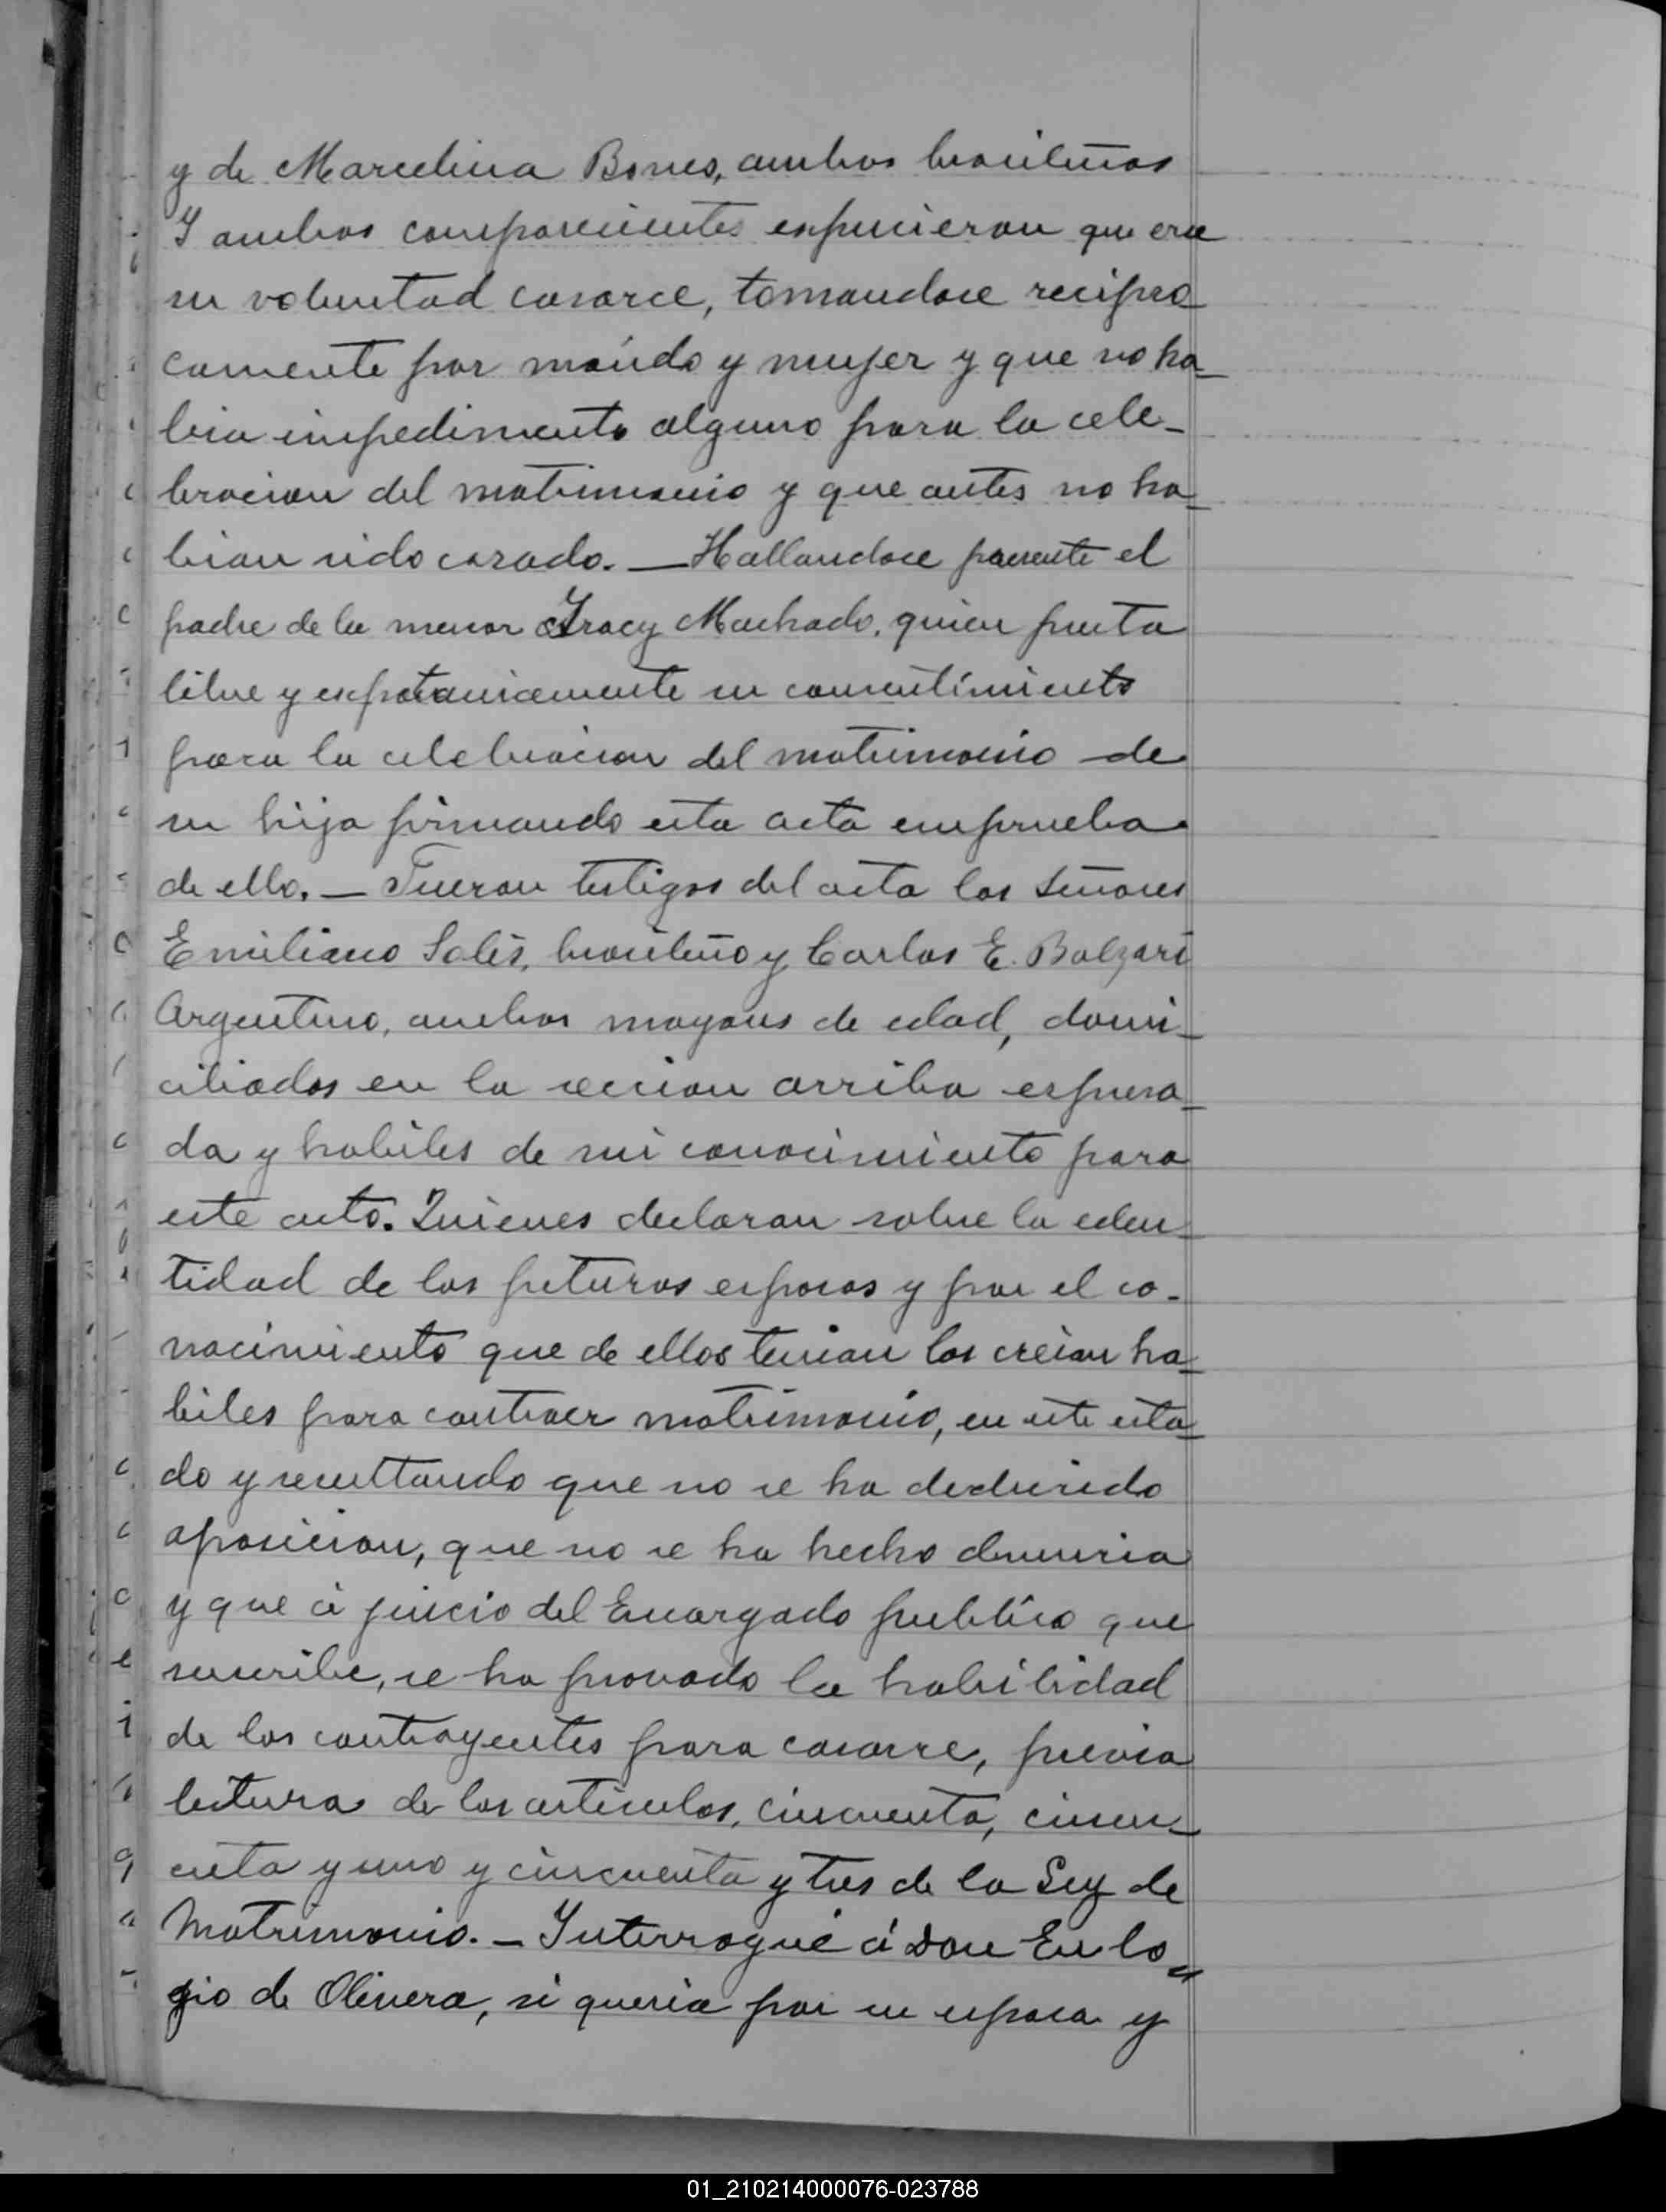 y de Marcelina Bones, ambos brasileños
Y ambos comparecientes expucieron que era
su voluntad casarce, tomandose recipro
camente por marido y mujer y que no ha-
bia impedimento alguno para la cele-
bracion del matrimonio y que antes no ha-
bian sido casado. — Hallandoce presente el
padre de la menor Yracy Machado, quien presta
libre y espotanicamente su consentimiento
para la celebracion del matrimonio de
su hija firmando esta acta emprueba
de ello. — Fueron testigos del acta los Señores
Emiliano Solis, brasileño y Carlos E. Balzari
Argentino, ambos mayores de edad, domi-
ciliados en la seccion arriba espresa-
da y habiles de mi conocimiento para
este acto. Quienes declaran sobre la eden-
tidad de los futuros esposos y por el co-
nocimiento que de ellos tenian los creian ha-
biles para contraer matrimonio, en este esta-
do y resultando que no se ha deducido
oposicion, que no se ha hecho denuncia
y que á juicio del Encargado publico que
suscribe, se ha provado la habilidad
de los contrayentes para casarse, previa
lectura de los articulos, cincuenta, cincu-
enta y uno y cincuenta y tres de la Ley de
Matrimonio. — Interrogué á Don Eulo-
gio de Olivera, si queria por su esposa y
01_210214000076-023788